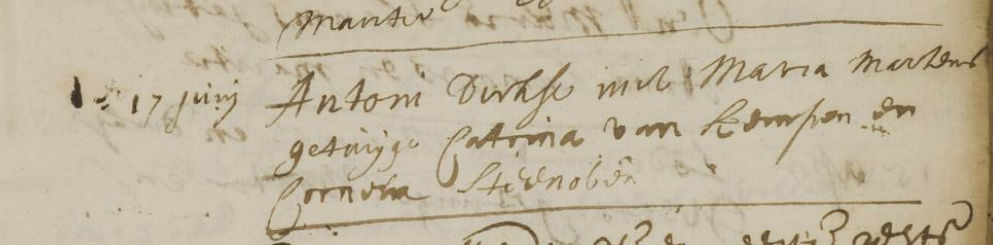 mantie
17 junij Antoni Dirkse met Maria Martens
getuijge Catrina van Kempen en
Cornelia